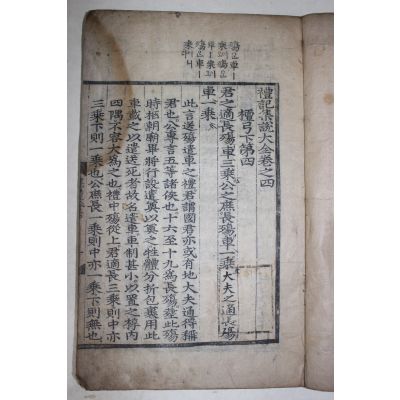 禮記集說大全卷之四
檀弓下第四
君之適長殤車三乘公之庶長殤車一乘大夫之適長殤
車一乘
此言送殤遣車之禮君謂國君亦或有地大夫通得稱
君也公專言五等諸侯也十六至十九爲長殤葬此殤
時柩朝廟畢將行設遣奠以奠之牲體分折包裹用此
車載之以遣送死者故名遣車車制甚小以置之槨內
四隅不容大爲之也禮中殤從上君適長三乘則中亦
三乘下則一乘也公庶長一乘則中亦一乘下則無也